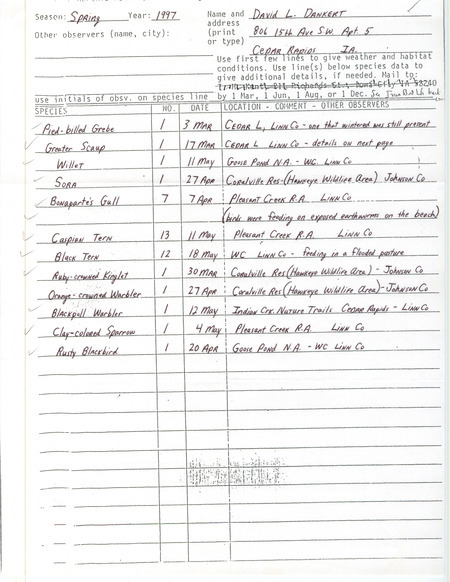 Season: Spring Year: 1997 Name and David L. Dankert
Other observers (name, city): address 806 15th Ave SW. Apt. 5
(print
or type) Cedar Rapids IA.
Use first few lines to give weather and habitat
conditions. Use line(s) below species data to
give additional details, if needed. Mail to:
use initials of obsv. on species line by 1 Mar, 1 Jun, 1 Aug, or 1 Dec.
SPECIES NO. DATE LOCATION - COMMENT - OTHER OBSERVERS
Pied-billed Grebe 1 3 Mar Cedar L, Linn Co - one that wintered was still present
Greater Scaup 1 17 Mar Cedar L Linn Co - details on next page
Willet 1 11 May Goose Pond N.A. - WC Linn Co
Sora 1 27 Apr Coralville Res (Hawkeye Wildlife Area) Johnson Co
Bonaparte's Gull 7 7 Apr Pleasant Creek R.A. Linn Co
(birds were feeding on exposed earthworms on the beach)
Caspian Tern 13 11 May Pleasant Creek R.A. Linn Co
Black Tern 12 18 May WC Linn Co - feeding in a flooded pasture
Ruby-crowned Kinglet 1 30 Mar Coralville Res (Hawkeye Wildlife Area) - Johnson Co
Orange-crowned Warbler 1 27 Apr Coralville Res (Hawkeye Wildlife Area) - Johnson Co
Blackpoll Warbler 1 12 May Indian Crk. Nature Trails Cedar Rapids - Linn Co
Clay-colored Sparrow 1 4 May Pleasant Creek R.A. Linn Co
Rusty Blackbird 1 20 Apr Goose Pond N.A. - WC Linn Co